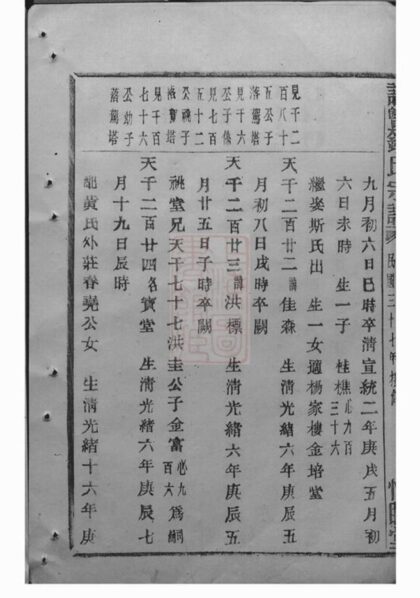 見千二
百八十
五公子
落駕塔
見千六
公子
見七百
五十二
公祧子
七十六
公幼子
落駕塔
九月初六日巳時卒清宣統二年庚戌五月初
六日未時 生一子 桂樵心九百三十六
繼娶斯氏出 生一女適楊家樓金培堂
天千二百廿二諱佳森 生清光緒六年庚辰五
月初八日戌時卒闕
天千二百廿三諱洪標 生清光緒六年庚辰五
月廿五日子時卒闕
祧堂兄天千七十七洪圭公子金富心九百六為嗣
天千二百廿四名寶堂 生清光緒六年庚辰七
月十九日辰時
配黃氏外莊春堯公女 生清光緒十六年庚